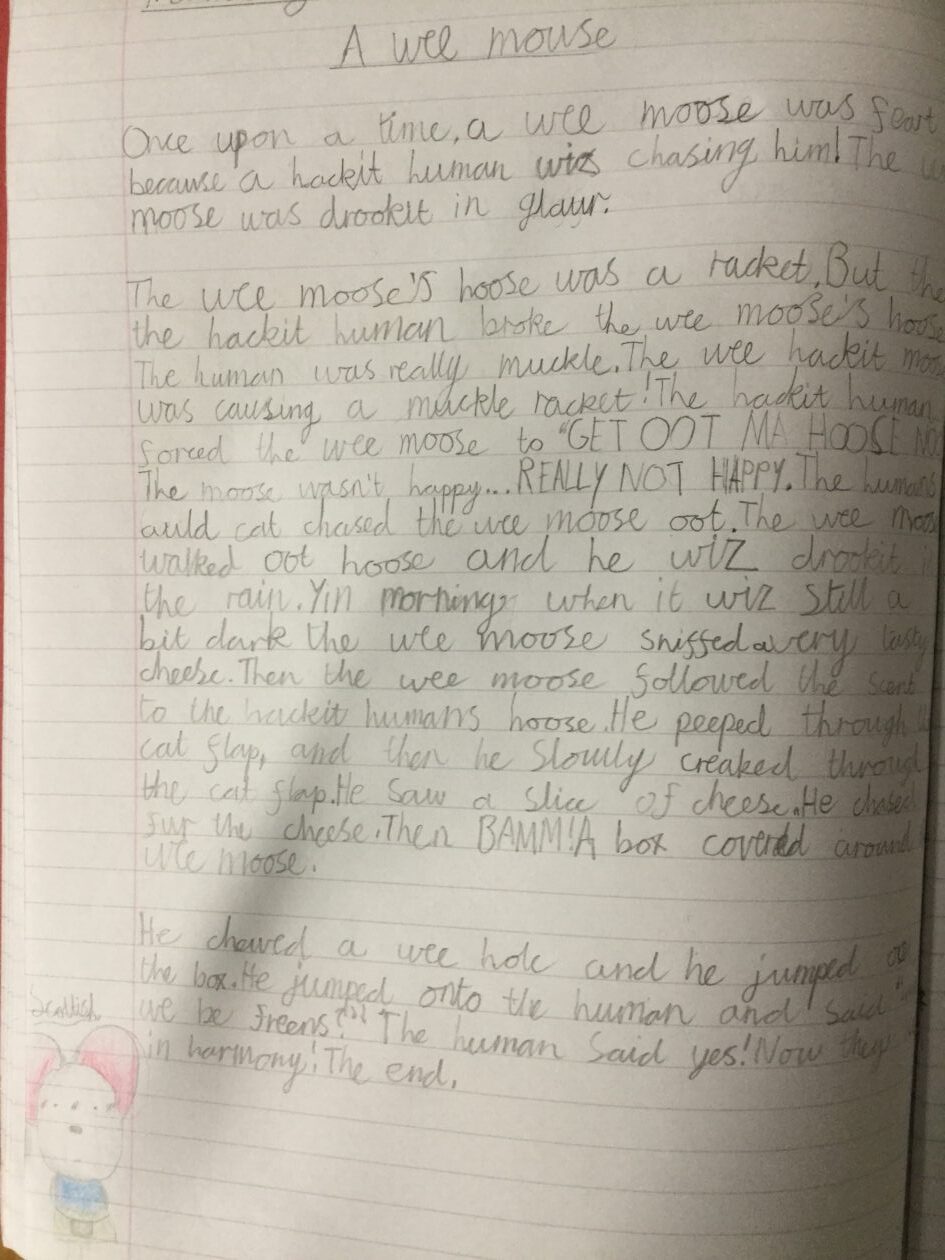 A wee mouse
Once upon a time, a wee moose was feart
because a hackit human wis chasing him! The
moose was drookit in glaur.
The wee moose's hoose was a racket. But the
the hackit human broke the wee moose's hoose
The human was really muckle. The wee hackit moose
was causing a muckle racket! The hackit human
forced the wee moose to "GET OOT MA HOOSE NO
The moose wasn't happy... REALLY NOT HAPPY. The humans
auld cat chased the wee moose oot. The wee moose
walked oot hoose and he wiz drookit in
the rain. Yin morning when it wiz still a
bit dark the wee moose sniffed a very tasty
cheese. Then the wee moose followed the scent
to the hackit humans hoose. He peeped through
cat flap, and then he slowly creaked through
the cat flap. He saw a slice of cheese. He chased
fur the cheese. Then BAMM! A box covered around
wee moose.
He chewed a wee hole and he jumped
the box. He jumped onto the human and said
we be freens?" The human said yes! Now they
in harmony! The end.
Scottish